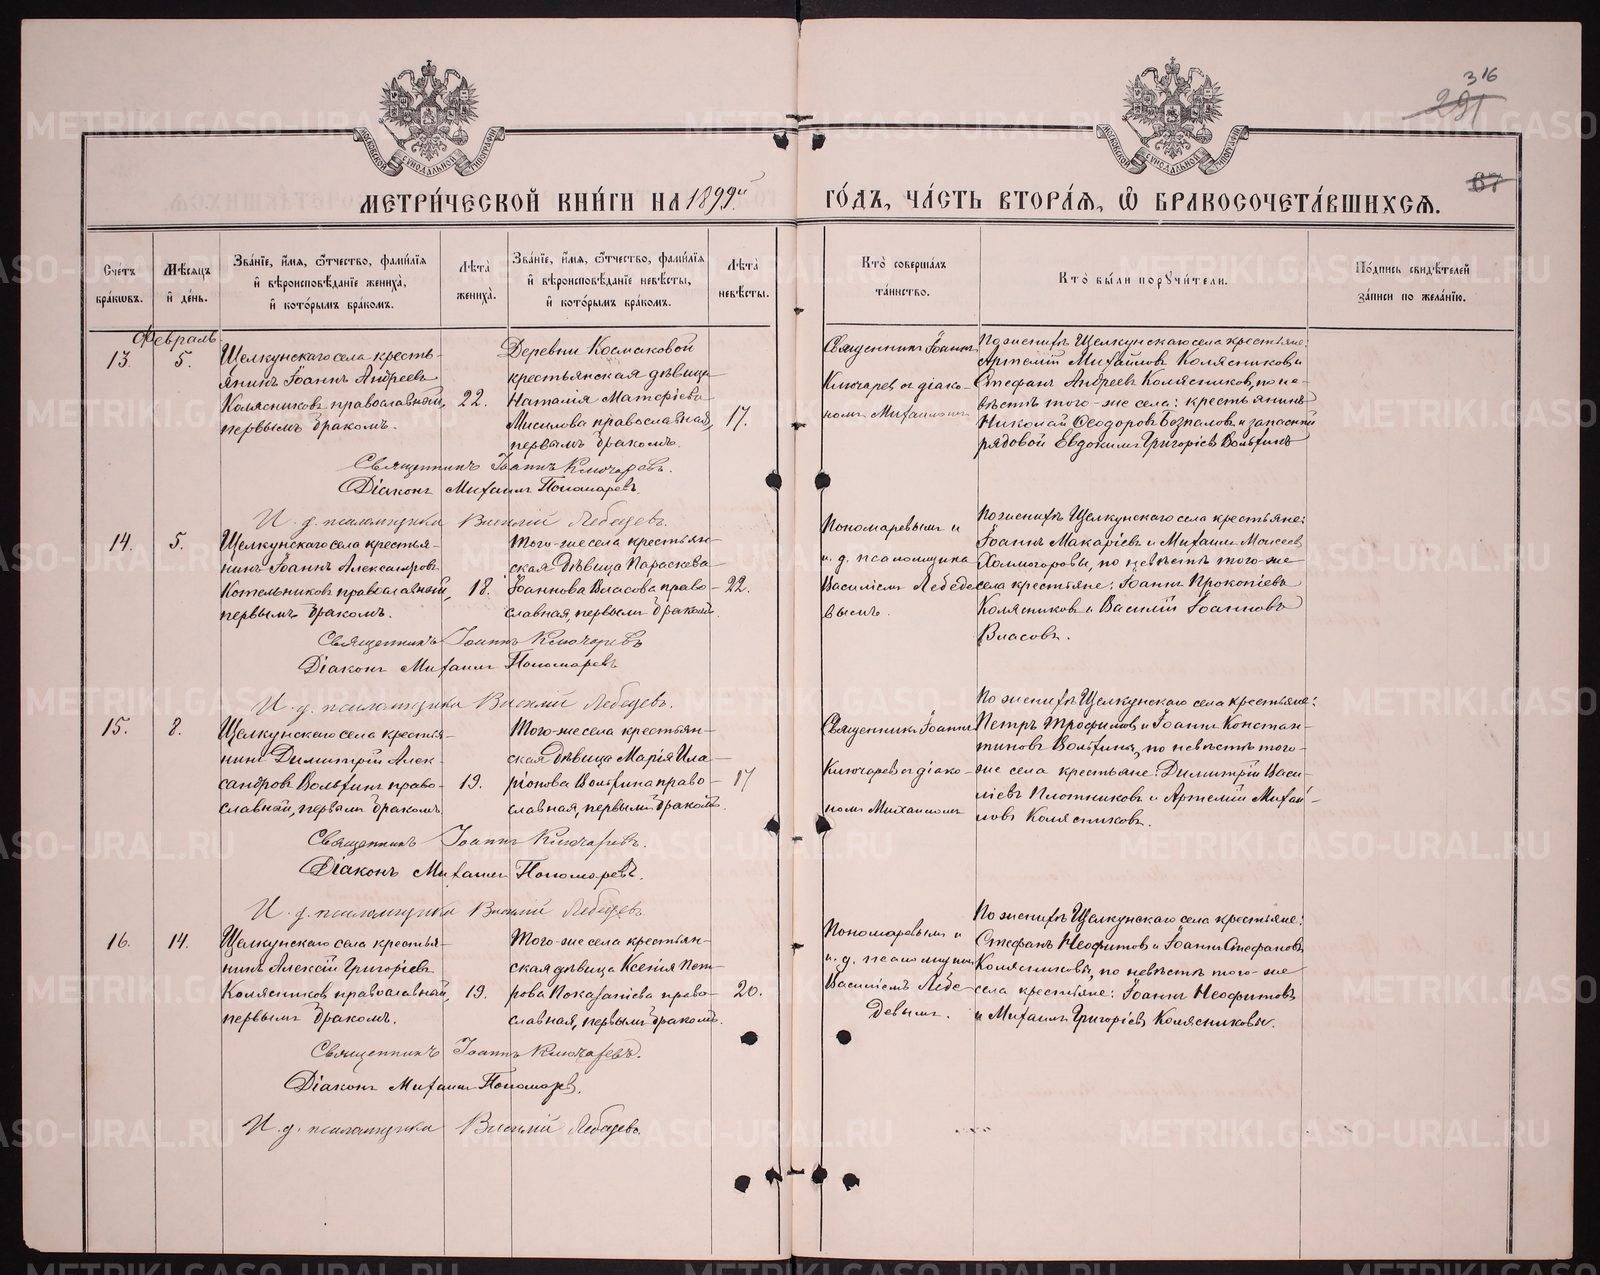 316
291
87
МЕТРИЧЕСКОЙ КНИГИ НА 1899й ГОДЪ, ЧАСТЬ ВТОРАЯ, Ѿ БРАКОСОЧЕТАВШИХСЯ.
Счетъ браковъ.
Мѣсяцъ и день.
Званіе, имя, отчество, фамилія и вѣроисповѣданіе жениха, и которымъ бракомъ.
Лѣта жениха.
Званіе, имя, отчество, фамилія и вѣроисповѣданіе невѣсты, и которымъ бракомъ.
Лѣта невѣсты.
Кто совершалъ таинство.
Кто были поручители.
Подпись свидѣтелей записи по желанію.
Февраль
13.
5.
Щелкунскаго села кресть-
янинъ Іоаннъ Андреевъ
Колясниковъ православный,
первымъ бракомъ.
22.
Деревни Космаковой
крестьянская дѣвица
Наталія Матѳіева
Мисилова православная,
первымъ бракомъ.
17.
Священникъ Іоаннъ
Ключаревъ съ діако-
номъ Михаиломъ
По женихѣ Щелкунскаго села крестьяне:
Артемій Михайловъ Колясниковъ и
Стефанъ Андреевъ Колясниковъ, по не-
вѣстѣ того-же села: крестьянинъ
Николай Ѳеодоровъ Безпаловъ и запасный
рядовой Евдокимъ Григоріевъ Волхинъ
Священникъ Іоаннъ Ключаревъ.
Діаконъ Михаилъ Пономаревъ.
И. д. псаломщика Василій Лебедевъ.
14.
5.
Щелкунскаго села крестья-
нинъ Іоаннъ Александровъ
Котельниковъ православный,
первымъ бракомъ.
18.
Того-же села крестьян-
ская дѣвица Параскева
Іоаннова Власова право-
славная, первымъ бракомъ
22.
Пономаревымъ и
и. д. псаломщика
Василіемъ Лебеде-
вымъ.
По женихѣ Щелкунскаго села крестьяне:
Іоаннъ Макаріевъ и Михаилъ Моисеевъ
Холмогоровы, по невѣстѣ того-же
села крестьяне: Іоаннъ Прокопіевъ
Колясниковъ и Василій Іоанновъ
Власовъ.
Священникъ Іоаннъ Ключаревъ
Діаконъ Михаилъ Пономаревъ
И. д. псаломщика Василій Лебедевъ.
15.
8.
Щелкунскаго села крестья-
нинъ Димитрій Алек-
сандровъ Волхинъ право-
славный, первымъ бракомъ.
19.
Того-же села крестьян-
ская дѣвица Марія Ила-
ріонова Волхина право-
славная, первымъ бракомъ.
17
Священникъ Іоаннъ
Ключаревъ съ діако-
номъ Михаиломъ
По женихѣ Щелкунскаго села крестьяне:
Петръ Трофимовъ и Іоаннъ Констан-
тиновъ Волхины, по невѣстѣ того-
же села крестьяне: Димитрій Васи-
ліевъ Плотниковъ и Артемій Михай-
ловъ Колясниковъ.
Священникъ Іоаннъ Ключаревъ.
Діаконъ Михаилъ Пономаревъ.
И. д. псаломщика Василій Лебедевъ.
16.
14.
Щелкунскаго села крестья-
нинъ Алексій Григоріевъ
Колясниковъ православный,
первымъ бракомъ.
19.
Того-же села крестьян-
ская дѣвица Ксенія Пет-
рова православная, первымъ бракомъ.
20.
Пономаревымъ и
и. д. псаломщика
Василіемъ Лебе-
девымъ.
По женихѣ Щелкунскаго села крестьяне:
Стефанъ Неофитовъ и Іоаннъ Стефановъ
Колясниковы, по невѣстѣ того-же
села крестьяне: Іоаннъ Неофитовъ
и Михаилъ Григоріевъ Колясниковы.
Священникъ Іоаннъ Ключаревъ.
Діаконъ Михаилъ Пономаревъ.
И. д. псаломщика Василій Лебедевъ.
METRIKI.GASO-URAL.RU